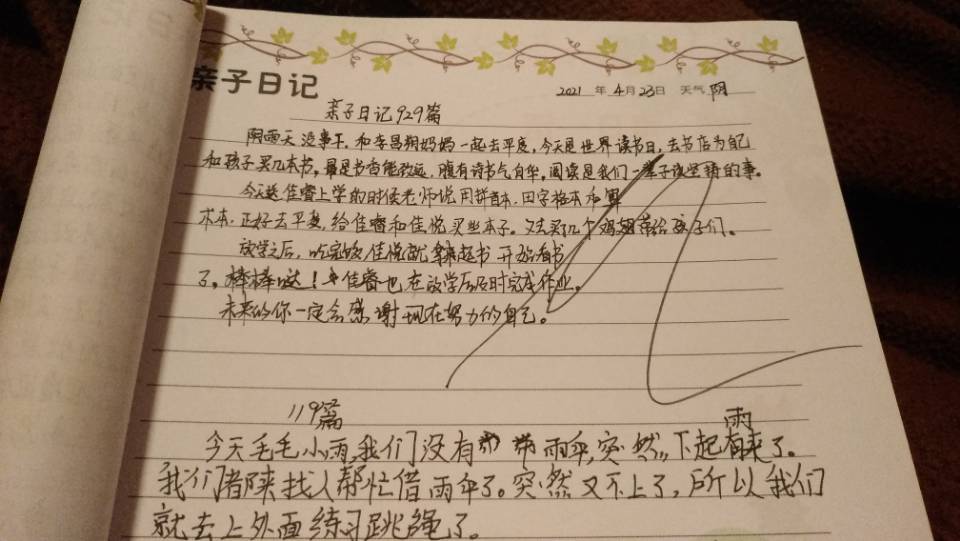 亲子日记
2021 年 4 月 23 日 天气 阴
亲子日记929篇
阴雨天没事干,和李昌翔妈妈一起去平度,今天是世界读书日,去书店为自己
和孩子买几本书,最是书香能致远,腹有诗书气自华,阅读是我们一辈子该坚持的事。
今天送佳睿上学的时候老师说用拼音本,田字格本和算
术本,正好去平度,给佳睿和佳悦买些本子。又去买几个鸡翅带给孩子们。
放学之后,吃完饭佳悦就拿起书开始看书
了。棒棒哒!佳睿也在放学后及时完成作业。
未来的你一定会感谢现在努力的自己。
119篇
今天毛毛小雨,我们没有带雨伞,突然,下起雨来了。
我们都来找人帮忙借雨伞了。突然又不上了,所以我们
就去上外面练习跳绳了。